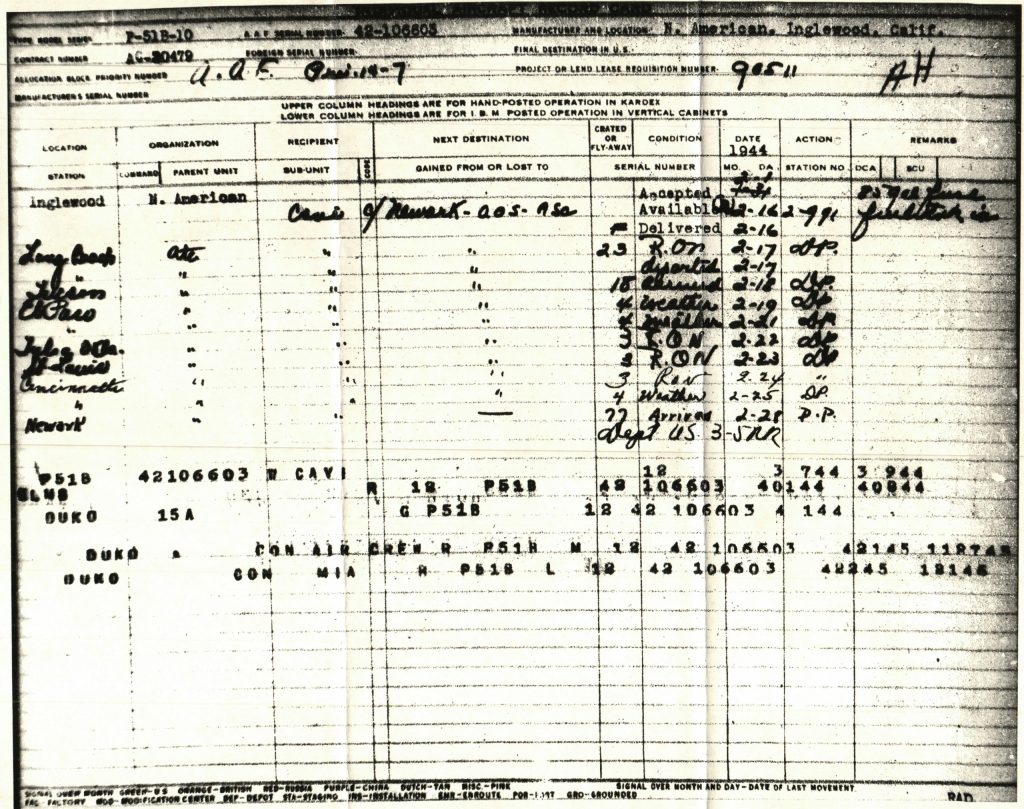 AIRCRAFT RECORD CARD
TYPE MODEL SERIES P-51B-10 A.A.F. SERIAL NUMBER 42-106603 MANUFACTURER AND LOCATION N. American, Inglewood, Calif.
CONTRACT NUMBER AC-30479 FOREIGN SERIAL NUMBER FINAL DESTINATION IN U.S.
ALLOCATION BLOCK PRIORITY NUMBER A.A.F. 14-7 PROJECT OR LEND LEASE REQUISITION NUMBER 90511 AH
MANUFACTURER'S SERIAL NUMBER
UPPER COLUMN HEADINGS ARE FOR HAND-POSTED OPERATION IN KARDEX
LOWER COLUMN HEADINGS ARE FOR I.B.M POSTED OPERATION IN VERTICAL CABINETS
LOCATION ORGANIZATION RECIPIENT NEXT DESTINATION CRATED OR FLY-AWAY CONDITION DATE 1944 ACTION REMARKS
STATION COMMAND PARENT UNIT SUB-UNIT CODE GAINED FROM OR LOST TO SERIAL NUMBER MO. DA STATION NO DCA BCU
Inglewood N. American Accepted
Newark - AOS - ASC Available 2-16
F Delivered 2-16
Long Beach Atc " " 23 R.O.N 2-17 DP.
" " " " departed 2-17
" " " 18 2-18 DP.
El Paso " " " 4 Weather 2-19 DP
" " " " Weather 2-21 DP
Tulsa Okla. " " " 3 R.O.N 2-22 DP
St Louis " " " 2 R.O.N 2-23 DP
Cincinnatti " " " 3 Ron 2-24 "
" " " 4 Weather 2-25 DP.
Newark " " — 77 Arrived 2-28 D.P.
Dept US 3-5 RR
P51B 42106603 CAVI 12 3 744 3 944
GLWS R 12 P51B 42 106603 40144 40844
DUKO 15A G P51B 12 42 106603 4 144
DUKO CON AIR CREW R M 12 42 106603 42145
DUKO CON MIA R P51B L 12 42 106603 42245 12145
SIGNAL OVER MONTH GREEN-U.S ORANGE-BRITISH RED-RUSSIA PURPLE-CHINA DUTCH-TAN MISC.-PINK SIGNAL OVER MONTH AND DAY-DATE OF LAST MOVEMENT.
FAC-FACTORY MOD-MODIFICATION CENTER DEP-DEPOT STA-STAGING INS-INSTALLATION ENR-ENROUTE GRO-GROUNDED
RAD